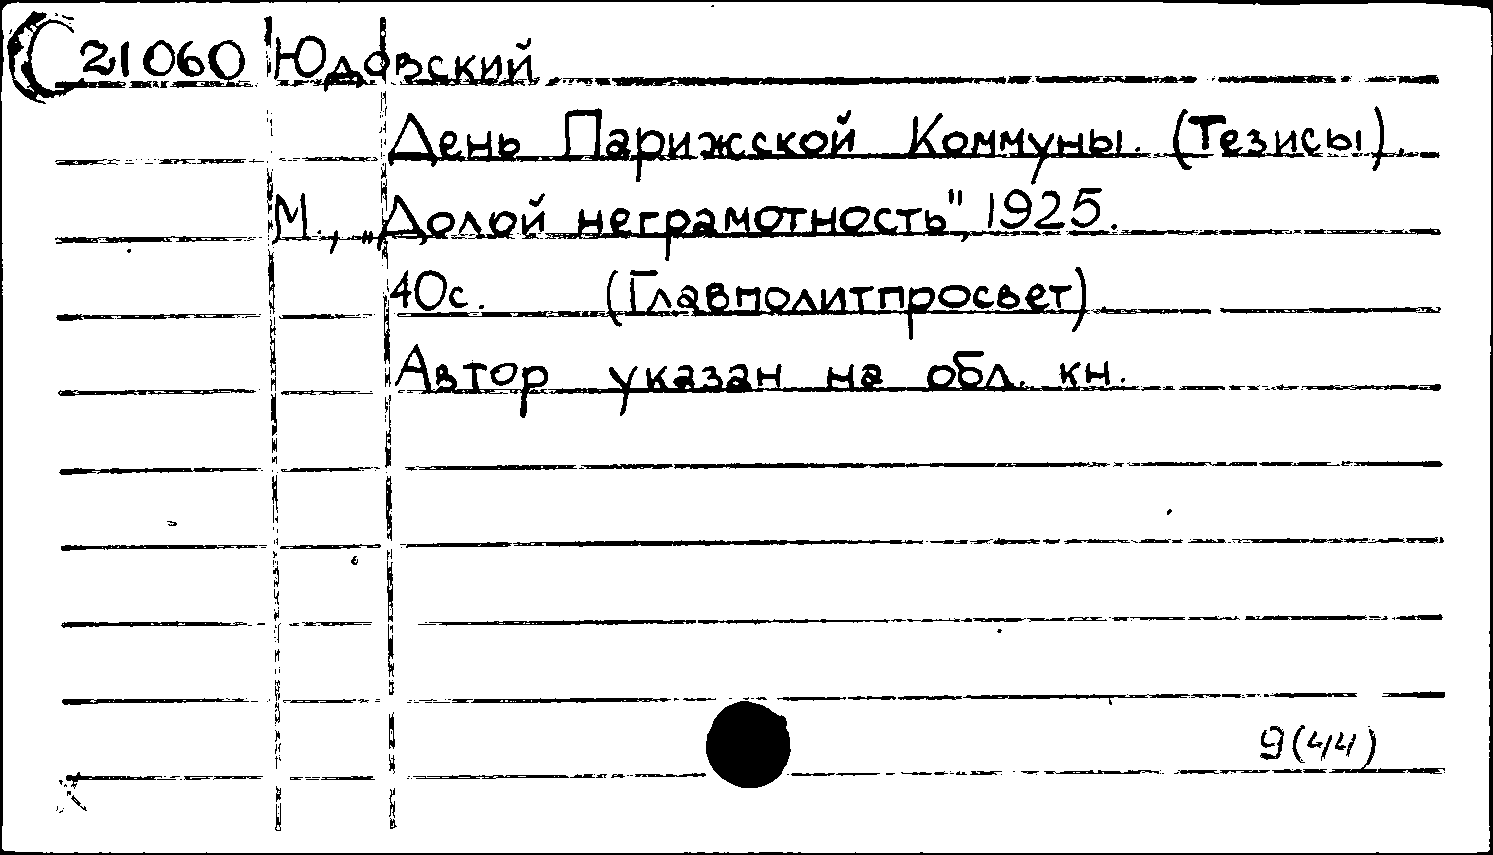 21060 Юдовский
День Парижской Коммуны. (Тезисы).
М., „Долой неграмотность", 1925.
40с. (Главполитпросвет)
Автор указан на обл. кн.
9(44)